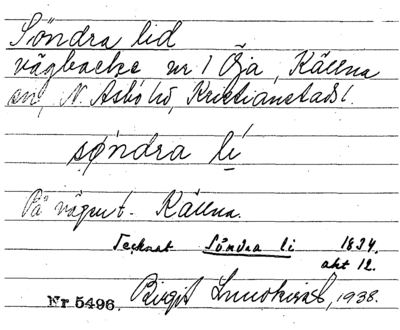 Söndra lid
vägbacke nr 1 Öja, Källna
sn, N. Åsbo hd, Kristianstads l.
sǫ́ndra lí
På väg ut. Källna.
Tecknat Söndra li 1834
akt 12.
Nr 5496. Birgit 1938.